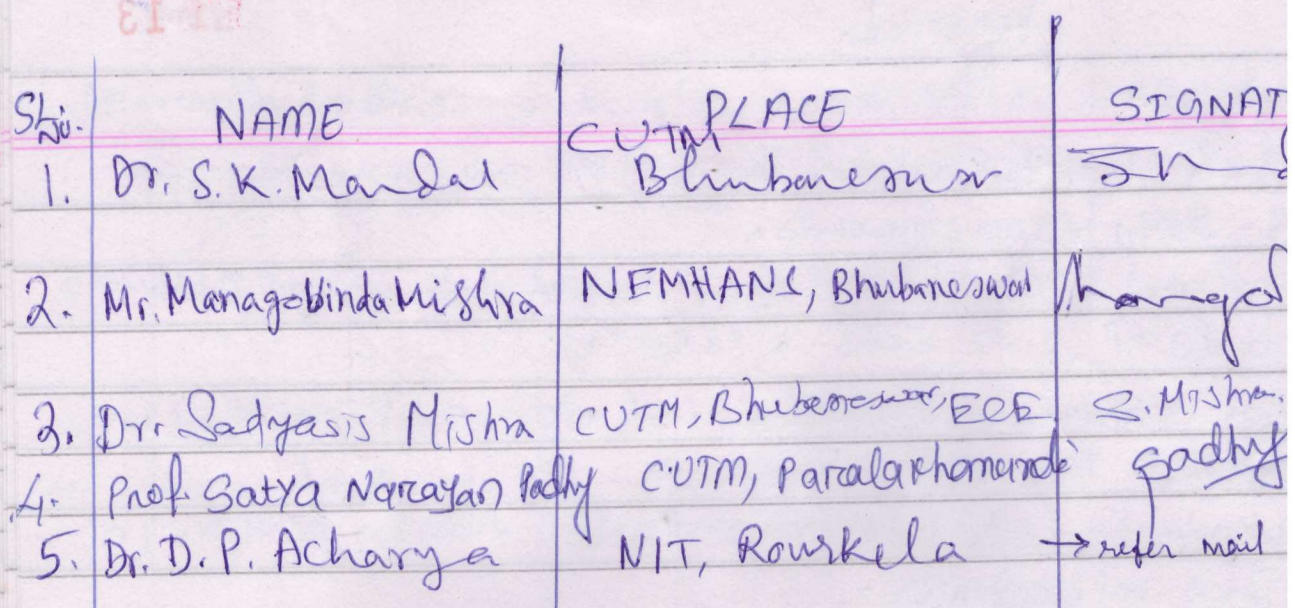 SL. No. NAME PLACE SIGNAT
CUTM
1. Dr. S.K. Mandal Bhubaneswar
2. Mr. Managobinda Mishra NEMHANS, Bhubaneswar
3. Dr. Sadyasis Mishra CUTM, Bhubaneswar, ECE S. Mishra.
4. Prof. Satya Narayan Padhy CUTM, Paralakhomundi Padhy
5. Dr. D.P. Acharya NIT, Rourkela → refer mail